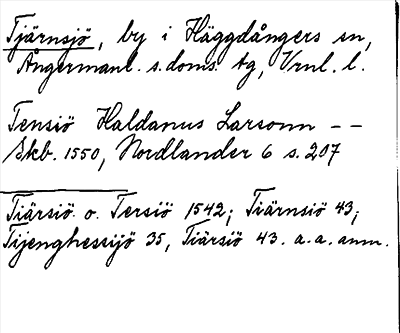 Tjärnsjö, by i Häggdångers sn,
Ångermanl. s. doms. tg, Vrnl. l.
Tensiö Haldanus Larsonn - -
Skb. 1550, Nordlander 6 s. 207
Tiärsiö o. Tersiö 1542; Tiärnsiö 43;
Tijenghessijö 35, Tiärsiö 43. a. a. anm.